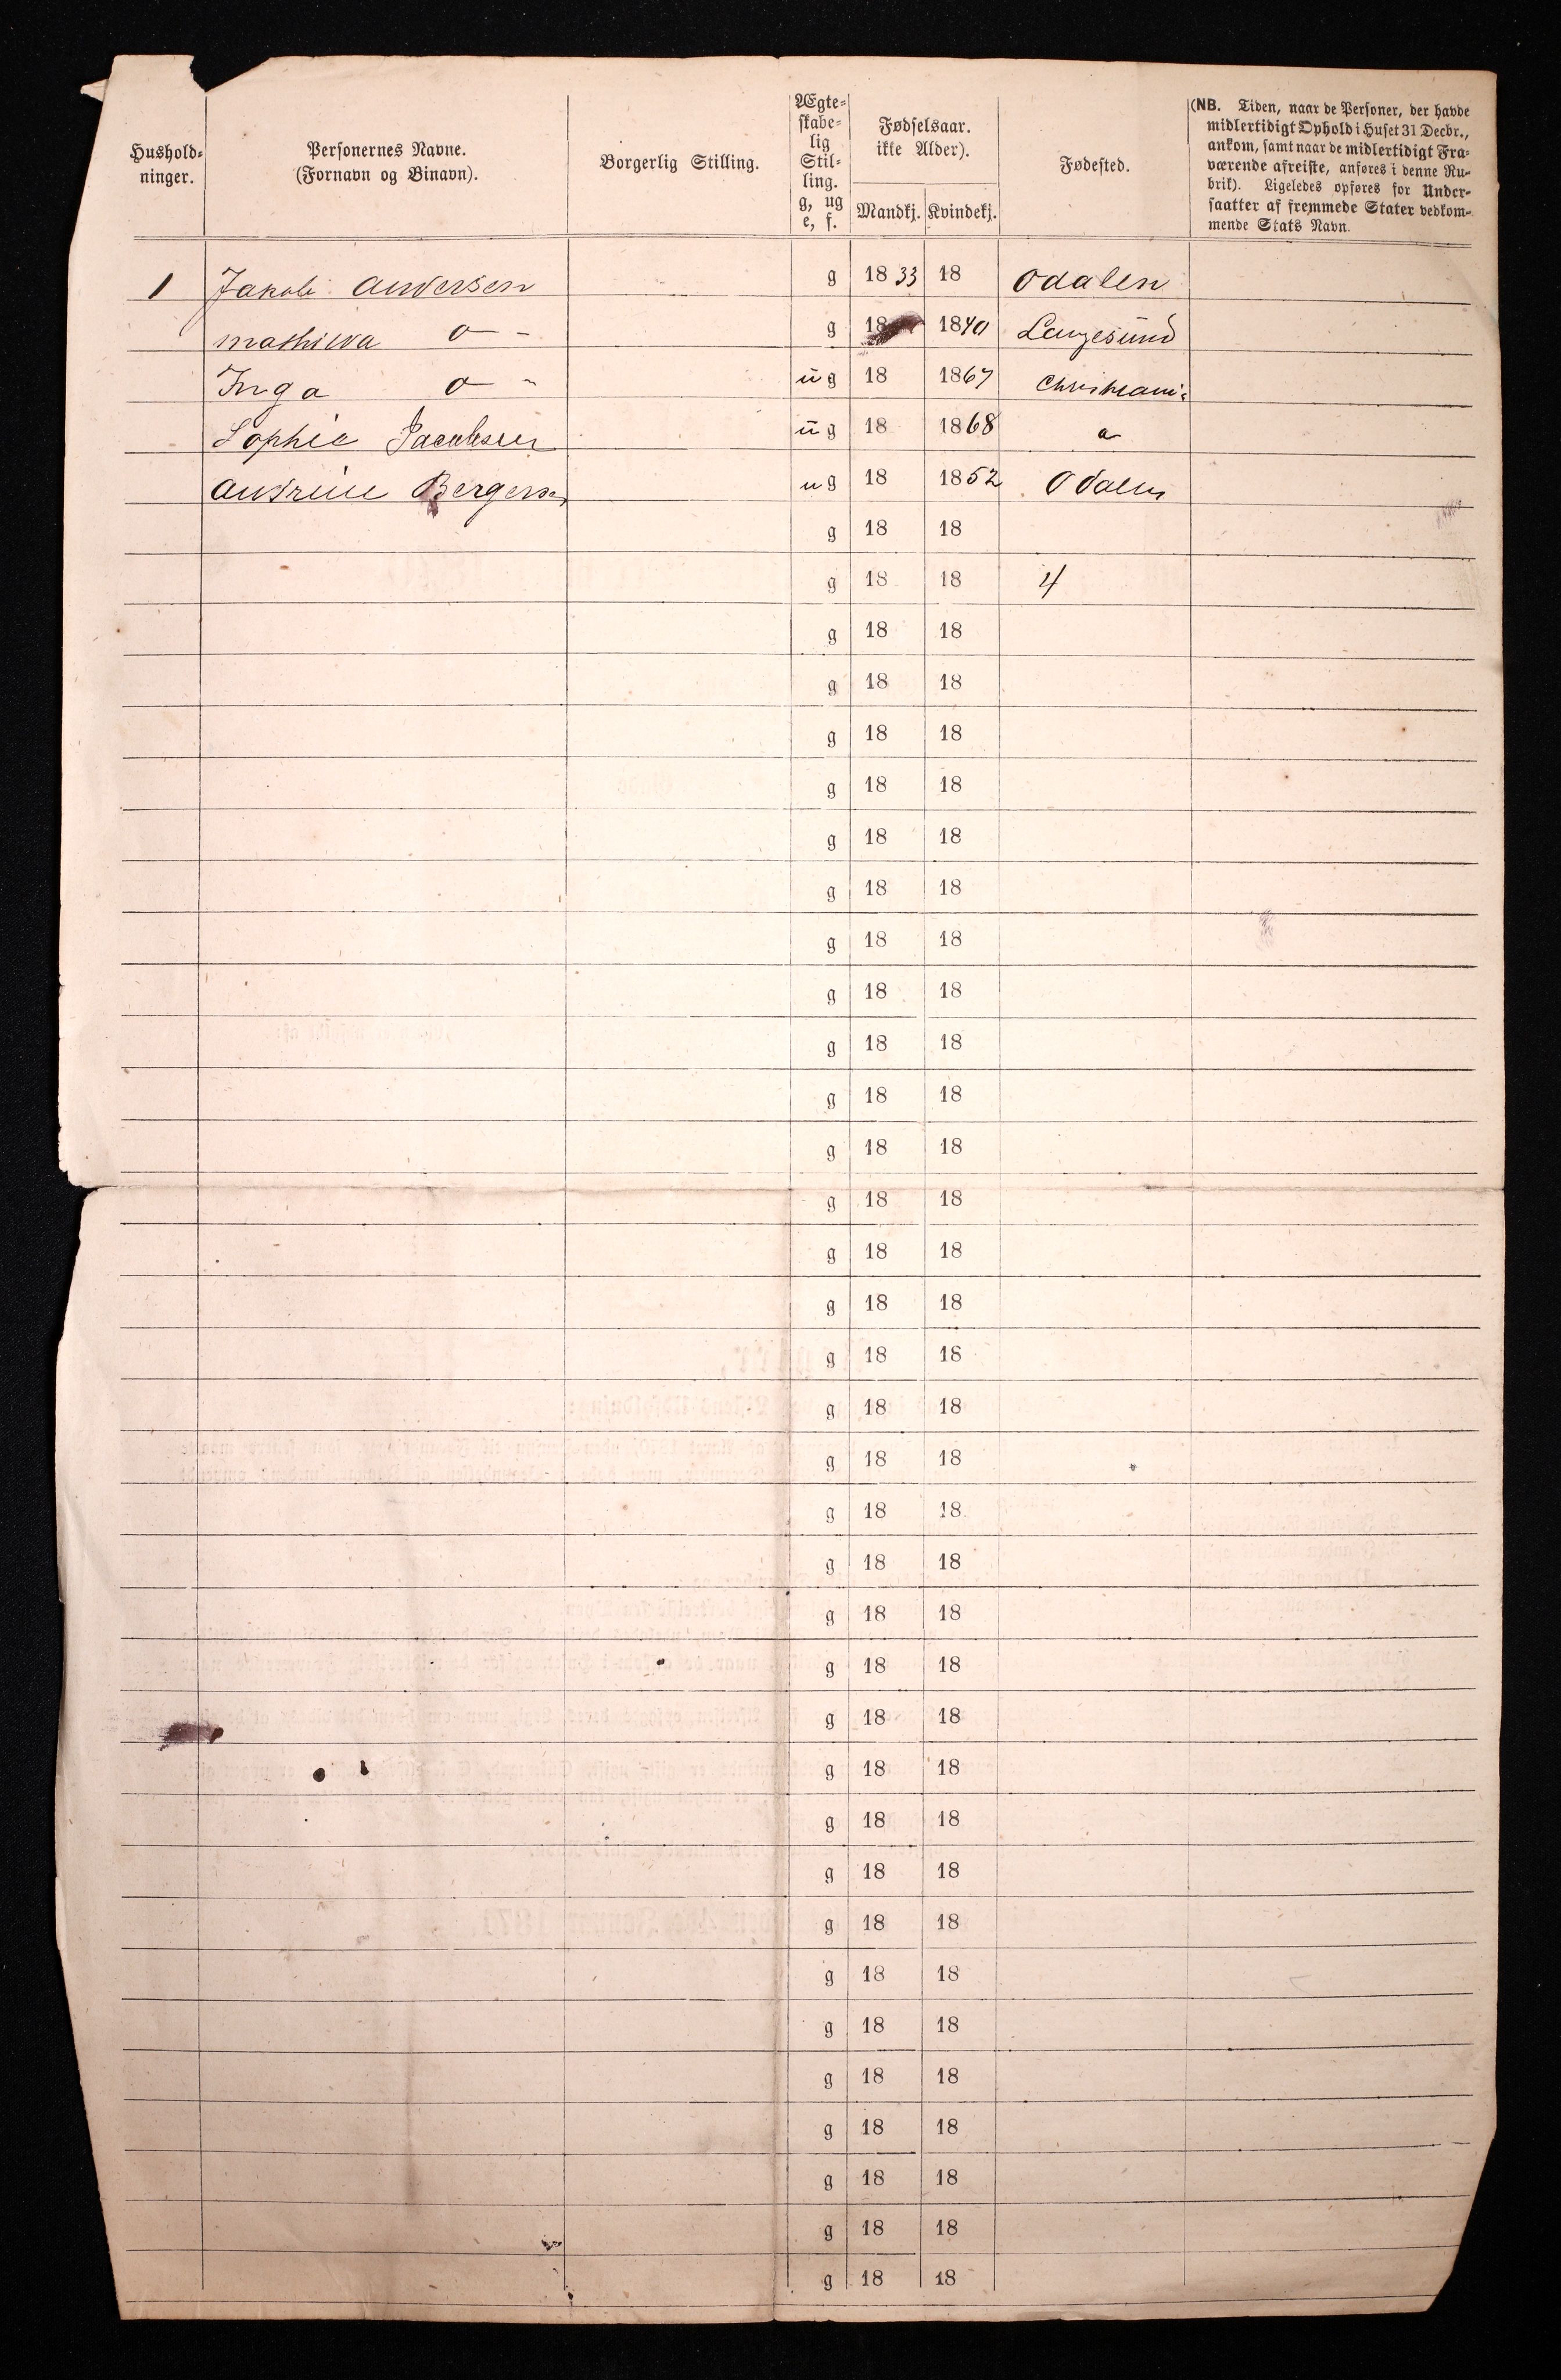 Hushold-
ninger.
Personernes Navne.
(Fornavn og Binavn).
Borgerlig Stilling.
Ægte-
skabe-
lig
Stil-
ling.
g, ug
e, f.
Fødselsaar.
ikke Alder).
Mandkj. Kvindekj.
Fødested.
(NB. Tiden, naar de Personer, der havde
midlertidigt Ophold i Huset 31 Decbr.,
ankom, samt naar de midlertidigt Fra-
værende afreiste, anføres i denne Ru-
brik). Ligeledes opføres for Under-
saatter af fremmede Stater vedkom-
mende Stats Navn.
1 Jakob Andersen g 1833 18 Odalen
g 18 1840 Langesund
Inga o - ug 18 1867 Christiania
Sophie Jacobsen ug 18 1868 a
Andrine Bergersen ug 18 1852 Odalen
g 18 18
g 18 18 4
g 18 18
g 18 18
g 18 18
g 18 18
g 18 18
g 18 18
g 18 18
g 18 18
g 18 18
g 18 18
g 18 18
g 18 18
g 18 18
g 18 18
g 18 18
g 18 18
g 18 18
g 18 18
g 18 18
g 18 18
g 18 18
g 18 18
g 18 18
g 18 18
g 18 18
g 18 18
g 18 18
g 18 18
g 18 18
g 18 18
g 18 18
g 18 18
g 18 18